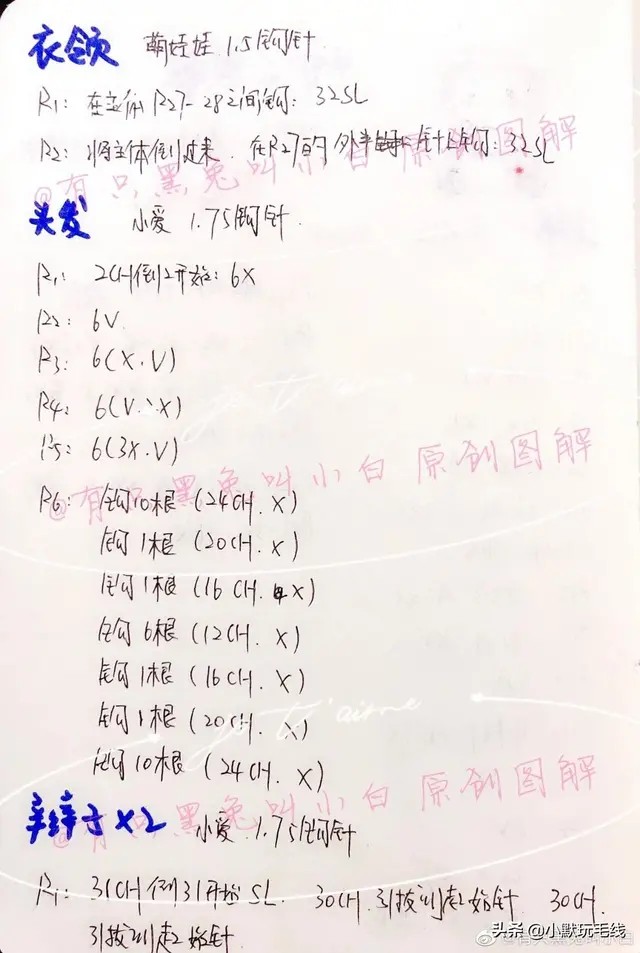 衣领 萌娃娃 1.5钩针
R1: 在主体R27-28之间钩: 32SL
R2: 将主体倒过来. 在R27的外半针上钩: 32SL
@有只黑兔叫小白原创图解
头发 小爱 1.75钩针
R1: 2CH倒2开始: 6X
R2: 6V
R3: 6(X.V)
R4: 6(V.X)
R5: 6(3X.V)
@有只黑兔叫小白 原创图解
R6: 钩10根 (24CH. X)
钩1根 (20CH. X)
钩1根 (16CH. X)
钩6根 (12CH. X)
钩1根 (16CH. X)
je t'aime
钩1根 (20CH. X)
钩10根 (24CH. X)
@有只黑兔叫小白 原创图解
辫子×2 小爱 1.75钩针
R1: 31CH倒31开始SL. 30CH.引拔到起始针. 30CH.
引拔到起始针.
头条 @小默玩毛线
@有只黑兔叫小白